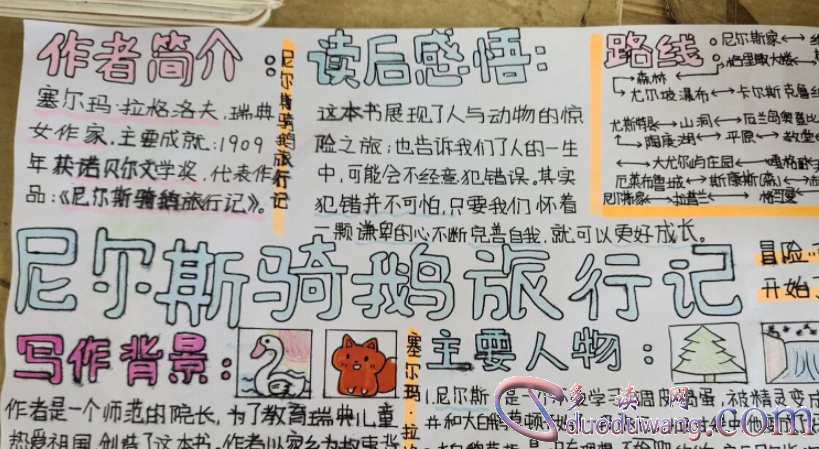 作者简介:
塞尔玛·拉格洛夫,瑞典
女作家,主要成就:1909
年获诺贝尔文学奖,代表作
品:《尼尔斯骑鹅旅行记》。
尼尔斯骑鹅旅行记
读后感悟:
这本书展现了人与动物的惊
险之旅;也告诉我们了人的一生
中,可能会不经意犯错误。其实
犯错并不可怕,只要我们怀着
一颗谦卑的心不断完善自我,就可以更好成长。
路线:尼尔斯家
森林
尤尔坡瀑布 卡尔斯克鲁
山洞
陶庞湖 平原
大尤尔屿庄园
厄莱布鲁城 斯康斯(森)
尼尔斯家 拉普兰
尼尔斯骑鹅旅行记
冒险
开始了
写作背景:
作者是一个师范的院长,为了教育瑞典儿童
热爱祖国,创造了这本书。作者以家乡为故事背
塞尔玛·拉
主要人物:
1.尼尔斯是一
被精灵变成
多读网
duoduwang.com